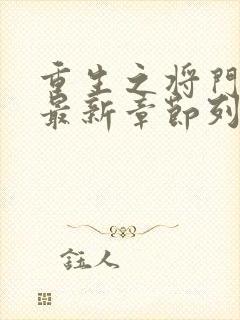 重生之将门
最新章节列
钰人